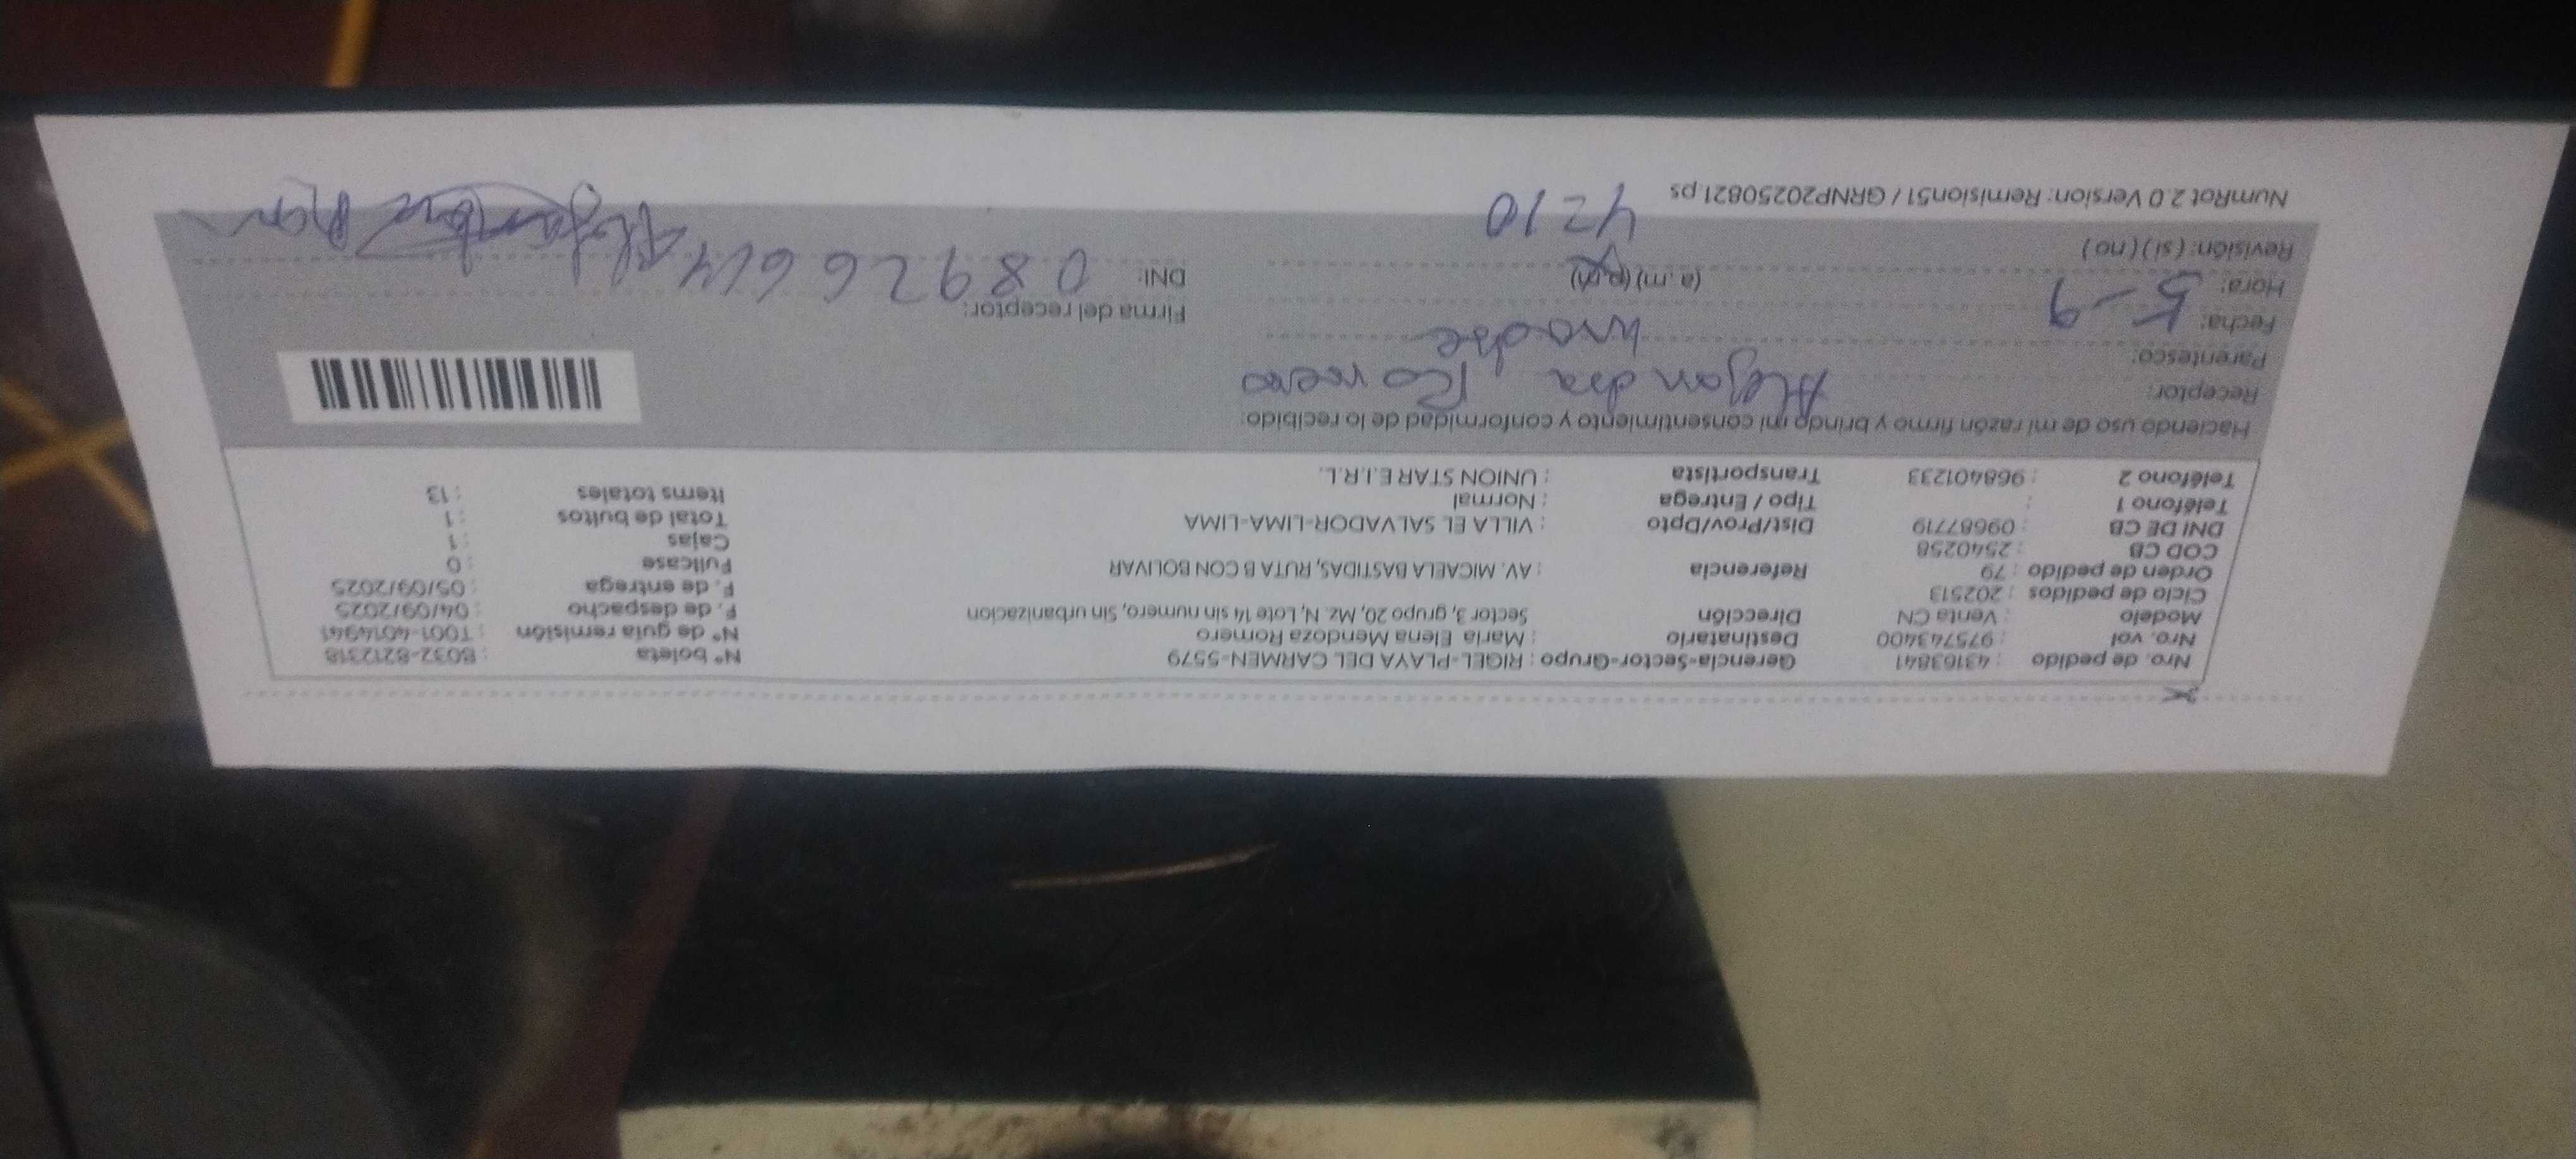 Nro. de pedido : 43163841
Nro. vol : 975743400
Modelo : Venta CN
Ciclo de pedidos : 202513
Orden de pedido : 79
COD CB : 2540258
DNI DE CB : 09687719
Teléfono 1 :
Teléfono 2 : 968401233
Gerencia-Sector-Grupo : RIGEL-PLAYA DEL CARMEN-5579
Destinatario : Maria Elena Mendoza Romero
Dirección Sector 3, grupo 20, Mz. N, Lote 14 sin numero, Sin urbanizacion
Referencia : AV. MICAELA BASTIDAS, RUTA B CON BOLIVAR
Dist/Prov/Dpto : VILLA EL SALVADOR-LIMA-LIMA
Tipo / Entrega : Normal
Transportista : UNION STAR E.I.R.L.
N° boleta : B032-8212318
N° de guía remisión : T001-4014941
F. de despacho : 04/09/2025
F. de entrega : 05/09/2025
Fullcase : 0
Cajas : 1
Total de bultos : 1
Items totales : 13
Haciendo uso de mi razón firmo y brindo mi consentimiento y conformidad de lo recibido:
Receptor: Alejandra Romero
Parentesco: madre
Fecha: 5-9
Hora: (a.m) (p.m)
4210
Revisión: (si) (no)
Firma del receptor:
DNI: 08926614
NumRot 2.0 Version: Remision51 / GRNP20250821.ps